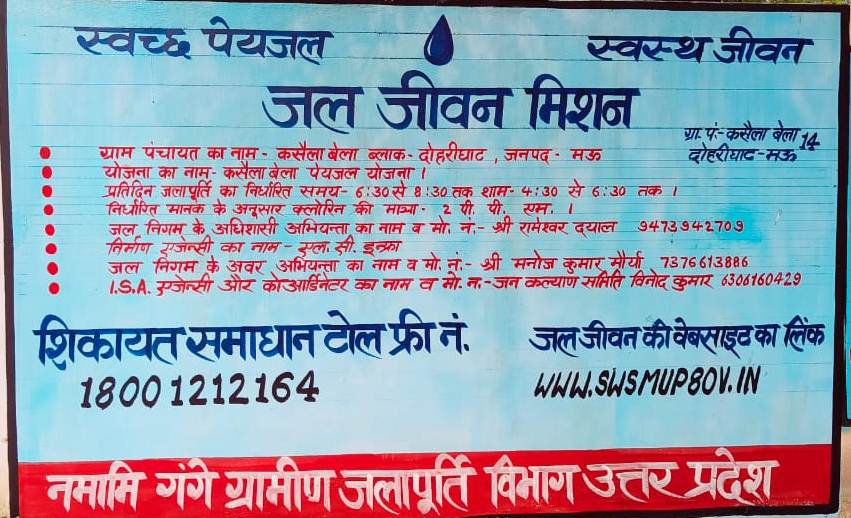 स्वच्छ पेयजल
स्वस्थ जीवन
जल जीवन मिशन
ग्रा. पं.- कसैला बेला 14
दोहरीघाट-मऊ
ग्राम पंचायत का नाम- कसैला बेला ब्लाक- दोहरीघाट, जनपद- मऊ
योजना का नाम- कसैला बेला पेयजल योजना ।
प्रतिदिन जलापूर्ति का निर्धारित समय- 6:30 से 8:30 तक शाम- 4:30 से 6:30 तक ।
निर्धारित मानक के अनुसार क्लोरिन की मात्रा- 2 पी. पी. एम. ।
जल निगम के अधिशासी अभियन्ता का नाम व मो. नं.- श्री रामेश्वर दयाल 9473942709
निर्माण एजेन्सी का नाम - एल. सी. इन्फ्रा
जल निगम के अवर अभियन्ता का नाम व मो. नं.- श्री मनोज कुमार मौर्या 7376613886
I.S.A. एजेन्सी और कोआर्डिनेटर का नाम व मो. न.- जन कल्याण समिति विनोद कुमार 6306160429
शिकायत समाधान टोल फ्री नं.
18001212164
जल जीवन की वेबसाइट का लिंक
WWW.SWSMUP8OV.IN
नमामि गंगे ग्रामीण जलापूर्ति विभाग उत्तर प्रदेश